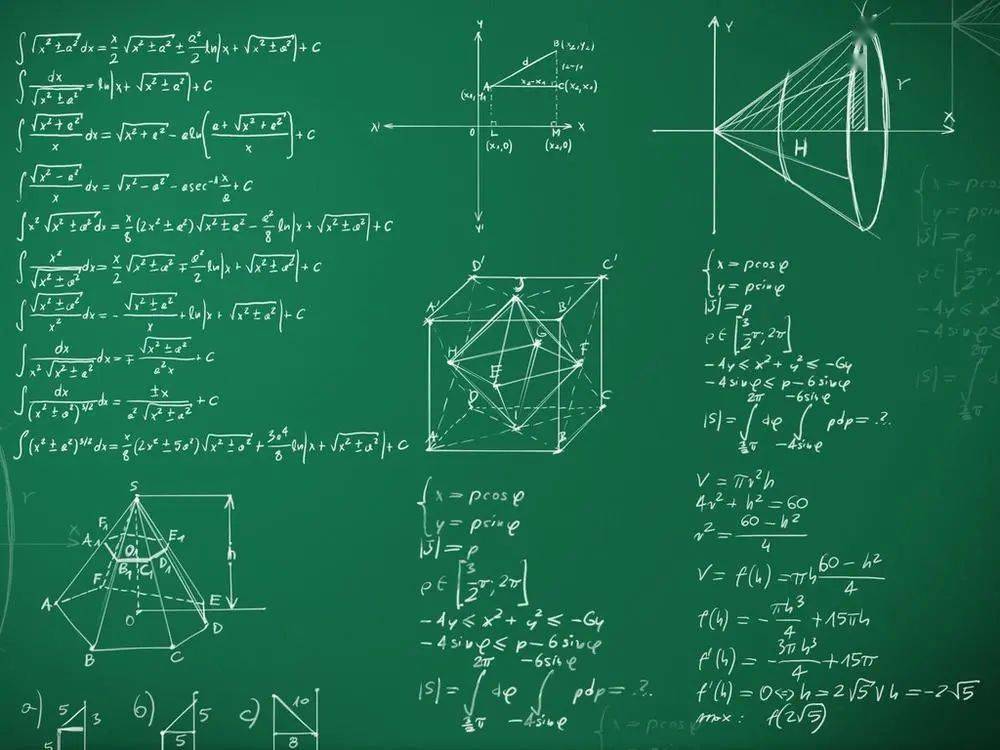 ∫√(x²±a²)dx = x/2 √(x²±a²) ± a²/2 ln|x+√(x²±a²)|+C
∫dx/√(x²±a²) = ln|x+√(x²±a²)|+C
∫√(x²+a²)/x dx = √(x²+a²) - aln((a+√(x²+a²))/x)+C
∫√(x²-a²)/x dx = √(x²-a²) - asec⁻¹ x/a+C
∫x²√(x²±a²)dx = x/8 (2x²±a²)√(x²±a²) - a²/8 ln|x+√(x²±a²)|+C
∫x²/√(x²±a²) dx = x/2 √(x²±a²) ∓ a²/2 ln|x+√(x²±a²)|+C
∫√(x²±a²)/x² dx = - √(x²±a²)/x + ln|x+√(x²±a²)|+C
∫dx/(x²√(x²±a²)) dx = ∓ √(x²±a²)/(a²x) +C
∫dx/(x²±a²)^3/2 dx = ±x/(a²√(x²±a²)) +C
∫(x²±a²)^3/2 dx = x/8 (2x²±5a²)√(x²±a²) + 3a⁴/8 ln|x+√(x²±a²)|+C
y
B(x₂,y₂)
d
A
x₂-x₁
C(x₂,y₁)
(x₁,y₁)
0 L M X
(x₁,0) (x₂,0)
y'
Y
r
H
X
D' C'
A' J B'
G
H F
E
D C
I
A B
S
F₁
A₁ E₁
O₁
B₁ C₁ D₁
h
F
A E
O D
B C
a) 5 3
5
b) 5
5
c) 10
8
{x = pcosφ
y = psinφ
|J| = p
φ∈[3/2 π, 2π]
-4y ≤ x²+y² ≤ -6y
-4sinφ ≤ p-6sinφ
2π -6sinφ
|S| = ∫ dφ ∫ pdp = ..?.
3/2 π -4sinφ
{x = pcosφ
y = psinφ
|J| = p
φ∈[3/2 π, 2π]
-4y ≤ x²+y² ≤ -6y
-4sinφ ≤ p-6sinφ
2π -6sinφ
|S| = ∫ dφ ∫ pdp = ..?.
3/2 π -4sinφ
V = πr²h
4r²+h² = 60
r² = (60-h²)/4
V = f(h) = πh (60-h²)/4
f(h) = - πh³/4 + 15πh
f'(h) = - 3πh³/4 + 15π
f'(h) = 0 ⇔ h = 2√5 ∨ h = -2√5
max: f(2√5)